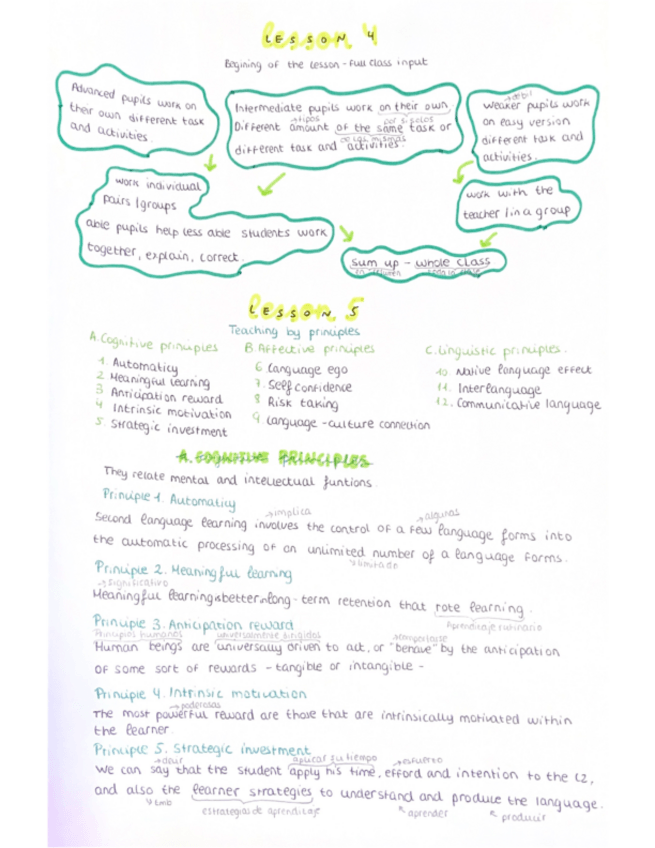 Lesson 4
LESSON 4
Begining of the lesson - full class input
Advanced pupils work on
their own different task
and activities.
Intermediate pupils work on their own
→tipos
por si solos
Different amount of the same task or
de las mismas
different task and activities.
→debil
weaker pupils work
on easy version
different task and
activities.
work individual
pairs / groups
able pupils help less able students work
together, explain, correct.
work with the
teacher 1 in a group
sum up - whole class
Lesson 5
LESSON 5
Teaching by principles
A. Cognitive principles
1. Automaticy
2 Meaningful learning
3 Anticipation reward
4 Intrinsic motivation
5. Strategic investment
B. Affective principles
6 Language ego
7. Self confidence
8 Risk taking
9. Language - culture connection
C. Linguistic principles.
10. Native language effect
11. Interlanguage
12. Communicative language
A. COGNITIVE PRINCIPLES
They relate mental and intellectual funtions
Principle 1. Automaticy
→implica
→algunas
Second language learning involves the control of a few language forms into
the automatic processing of an unlimited number of a language forms.
limitado
Principle 2. Meaningful learning
→significativo
Meaningful learning is better in long-term retention that rote learning.
Aprendizaje rutinario
Principle 3. Anticipation reward
Principios humanos
universalmente dirigidos
→comportarte
Human beings are universally driven to act, or "behave" by the anticipation
of some sort of rewards - tangible or intangible -
Principle 4. Intrinsic motivation
→poderosas
The most powerful reward are those that are intrinsically motivated within
the learner.
Principle 5. Strategic investment
→decir
aplicar su tiempo
→esfuerzo
We can say that the student apply his time, efford and intention to the L2,
and also the learner strategies to understand and produce the language.
estrategias de aprendizaje
aprender
producir